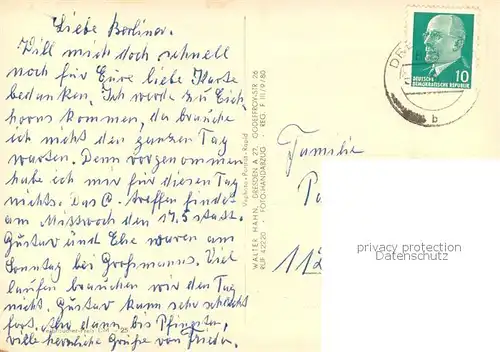 Liebe Berliner.
Will mich doch schnell
noch für Eure liebe Karte
bedanken. Ich werde zu Eich
horns kommen, da brauche
ich nicht den ganzen Tag
warten. Denn vorgenommen
habe ich mir für diesen Tag
nichts. Das C. treffen findet
am Mittwoch den 17.5 statt.
Gustav und Else waren am
Sonntag bei Großmanns. Viel
laufen brauchen wir den Tag
nicht. Gustav kann sehr schlecht
fort. Also dann bis Pfingsten,
viele herzliche Grüße von Frieda.
25
Visphoto-Porträt-Rapid
WALTER HAHN, DRESDEN A 27,
RUF 42220 FOTO-HANDABZUG REG. F III/9/80
DRE
b
DEUTSCHE
DEMOKRATISCHE REPUBLIK
10
Familie
Pa
112
privacy protection
Datenschutz